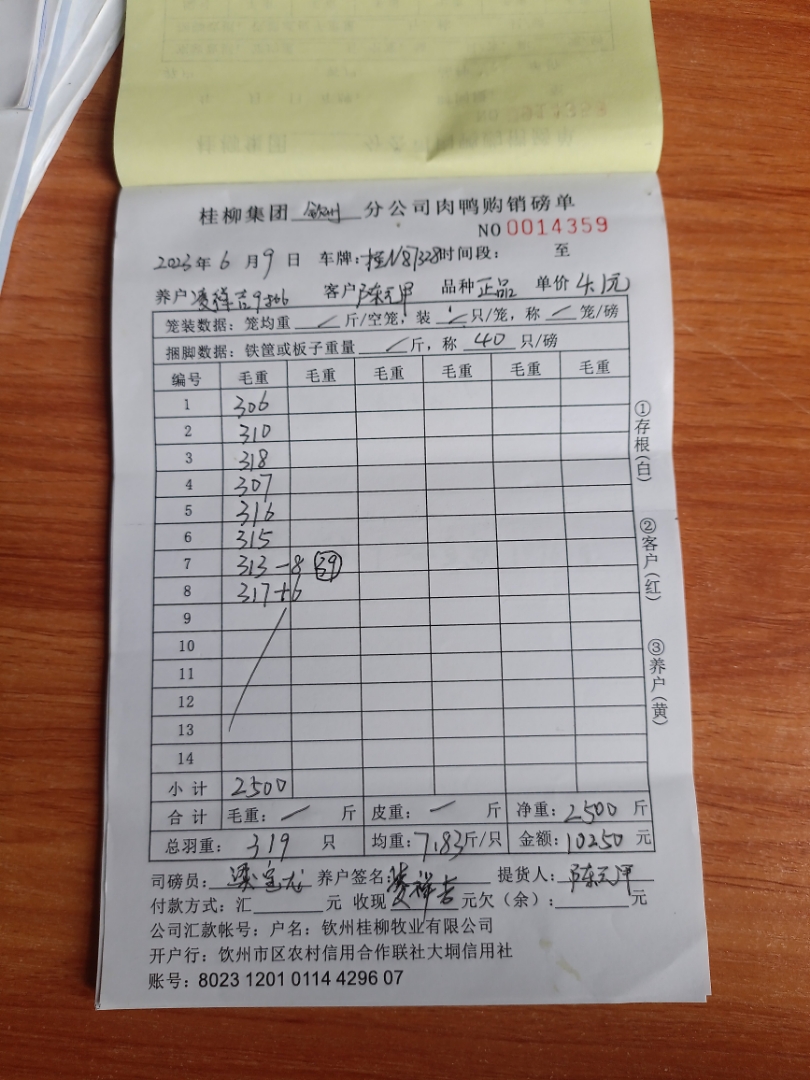 桂柳集团 钦州 分公司肉鸭购销磅单
NO 0014359
2023年 6 月 9 日 车牌：桂N87328 时间段： 至
养户 凌祥吉 客户 陈元甲 品种 正品 单价 4.1元
笼装数据：笼均重 / 斤/空笼，装 / 只/笼，称 / 笼/磅
捆脚数据：铁筐或板子重量 / 斤，称 40 只/磅
编号 毛重 毛重 毛重 毛重 毛重 毛重
1 306
2 310
3 318
4 307
5 316
6 315
7 313-8 39
8 317+6
9
10
11
12
13
14
小计 2500
合计 毛重： / 斤 皮重： / 斤 净重：2500 斤
总羽重： 319 只 均重：7.83斤/只 金额：10250 元
司磅员： 梁宝龙 养户签名：凌祥吉 提货人：陈元甲
付款方式：汇 元 收现 元欠（余）： 元
公司汇款帐号：户名：钦州桂柳牧业有限公司
开户行：钦州市区农村信用合作联社大垌信用社
账号：8023 1201 0114 4296 07
①存根（白）
②客户（红）
③养户（黄）